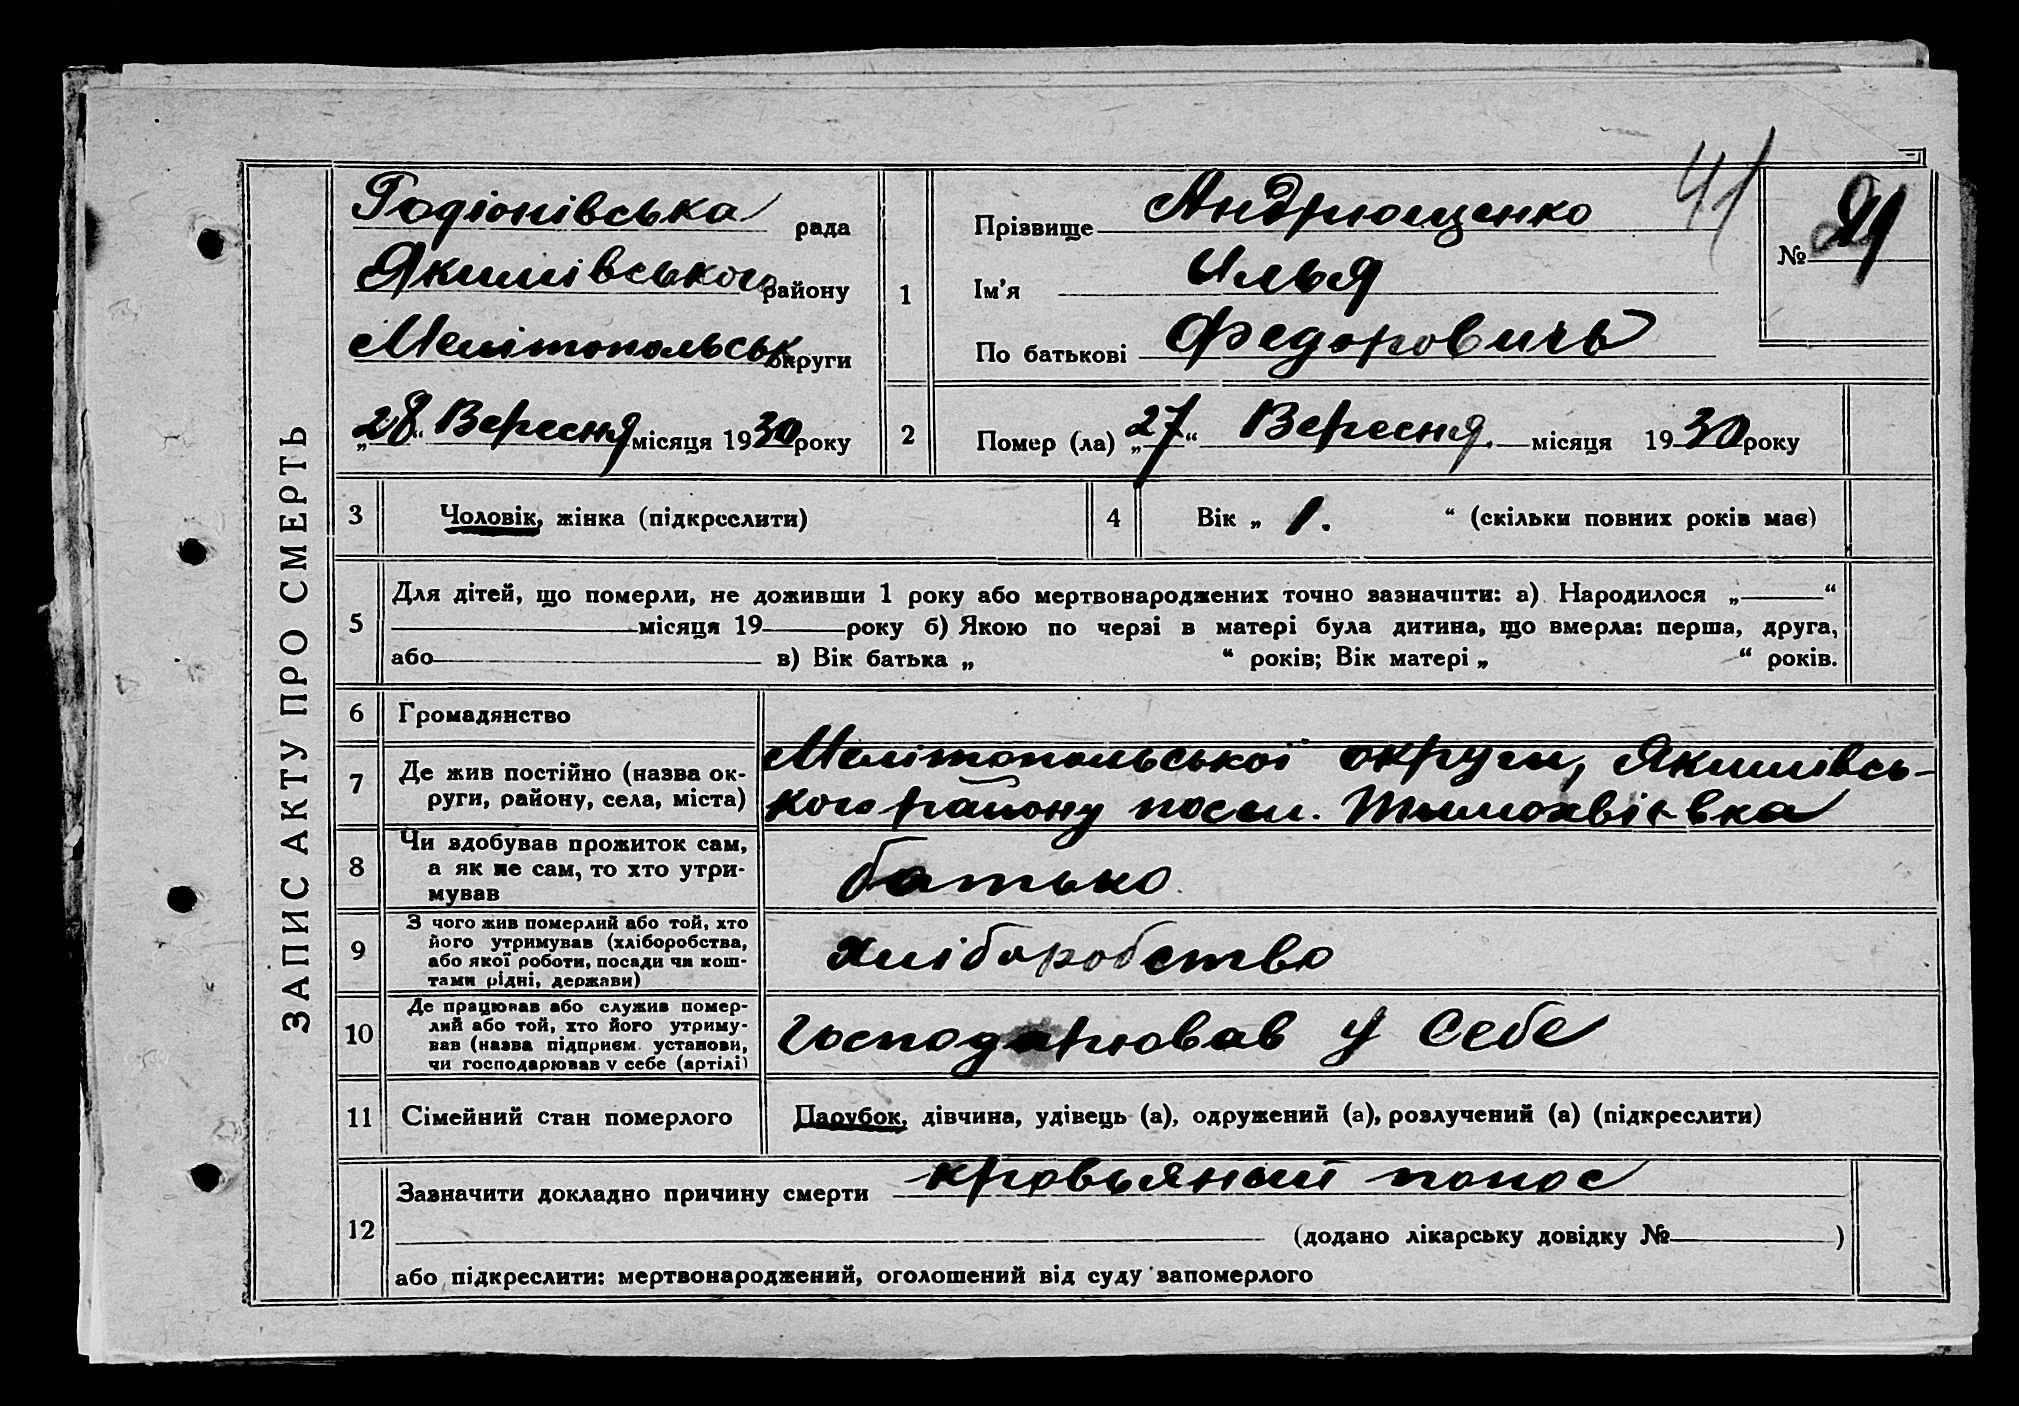 ЗАПИС АКТУ ПРО СМЕРТЬ
Родіонівська рада
Якимівського району
Мелітопольськ округи
„28“ Вересня місяця 1930 року
1
Прізвище Андрющенко
Ім’я Илья
По батькові Федоровичь
41
№ 21
2
Помер (ла) „27“ Вересня місяця 1930 року
3
Чоловік, жінка (підкреслити)
4
Вік „ 1. “ (скільки повних років має)
5
Для дітей, що померли, не доживши 1 року або мертвонароджених точно зазначити: а) Народилося „ “
місяця 19 року б) Якою по черзі в матері була дитина, що вмерла: перша, друга,
або в) Вік батька „ “ років; Вік матері „ “ років.
6
Громадянство
7
Де жив постійно (назва ок-
руги, району, села, міста)
Мелітопольської округи, Якимівсь-
кого району посел. Тимохвіївка
8
Чи здобував прожиток сам,
а як не сам, то хто утри-
мував
батько
9
З чого жив померлий або той, хто
його утримував (хліборобства,
або якої роботи, посади чи кош-
тами рідні, держави)
хліборобство
10
Де працював або служив помер-
лий або той, хто його утриму-
вав (назва підприєм. установи,
чи господарював у себе (артілі)
Господарював у себе
11
Сімейний стан померлого
Парубок, дівчина, удівець (а), одружений (а), розлучений (а) (підкреслити)
12
Зазначити докладно причину смерти кровьяный понос
(додано лікарську довідку № )
або підкреслити: мертвонароджений, оголошений від суду запомерлого